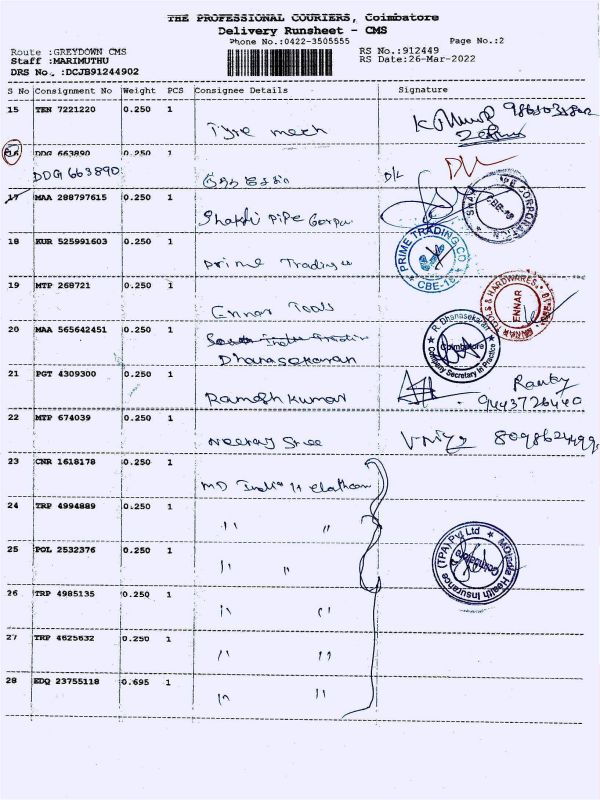 THE PROFESSIONAL COURIERS, Coimbatore
Delivery Runsheet - CMS
Phone No.:0422-3505555 Page No.:2
Route :GREYDOWN CMS RS No.:912449
Staff :MARIMUTHU RS Date:26-Mar-2022
DRS No., :DCJB91244902
S No Consignment No Weight PCS Consignee Details Signature
15 TEN 7221220 0.250 1
Tyre mech
16 DDG 663890 0.250 1
DDG 663890 D/L
17 MAA 288797615 0.250 1
Shakthi Pipe Corpn
18 KUR 525991603 0.250 1
Prime Trading
PRIME TRADING CO
CBE-18
19 MTP 268721 0.250 1
Ennar Tools
TOOLS & HARDWARES
ENNAR
20 MAA 565642451 0.250 1
South India Tradin
Dhanasekaran
R. Dhanasekaran
Coimbatore
Company Secretary in Practice
21 PGT 4309300 0.250 1
Ramesh Kumar
9443726440
22 MTP 674039 0.250 1
Neeraj Shree
23 CNR 1618178 0.250 1
MD India H elathcan
24 TRP 4994889 0.250 1
" "
25 POL 2532376 0.250 1
" "
MDIndia Health Insurance (TPA) Pvt Ltd
Coimbatore
26 TRP 4985135 0.250 1
" "
27 TRP 4625632 0.250 1
" "
28 EDQ 23755118 0.695 1
" "